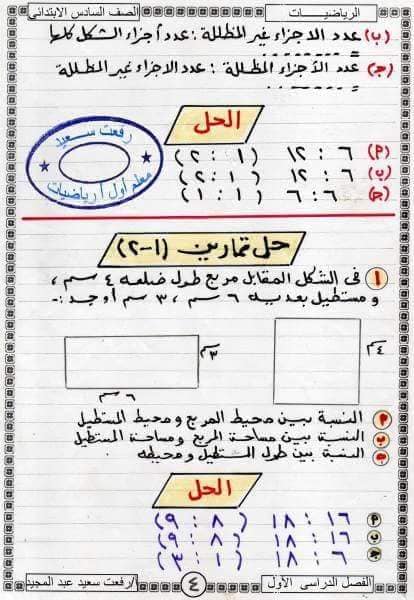 الرياضيــــات
الصف السادس الابتدائى
(ب) عدد الاجزاء غير المظللة : عدد أجزاء الشكل كلها
(جـ) عدد الأجزاء المظللة : عدد الاجزاء غير المظللة
الحل
رفعت سعيد
معلم أول أ رياضيات
(م) ٦ : ١٢ ( ١ : ٢ )
(ب) ٦ : ١٢ ( ١ : ٢ )
(جـ) ٦ : ٦ ( ١ : ١ )
حل تمارين (١-٢)
١ فى الشكل المقابل مربع طول ضلعه ٤ سم ،
ومستطيل بعديه ٦ سم ، ٣ سم أوجد :-
٤ سم
٣ سم
٦ سم
م النسبة بين محيط المربع ومحيط المستطيل
ب النسبة بين مساحة المربع ومساحة المستطيل
جـ النسبة بين طول المستطيل ومحيطه
الحل
م ١٦ : ١٨ ( ٨ : ٩ )
ب ١٦ : ١٨ ( ٨ : ٩ )
جـ ٦ : ١٨ ( ١ : ٣ )
الفصل الدراسى الأول
٤
أ/ رفعت سعيد عبد المجيد